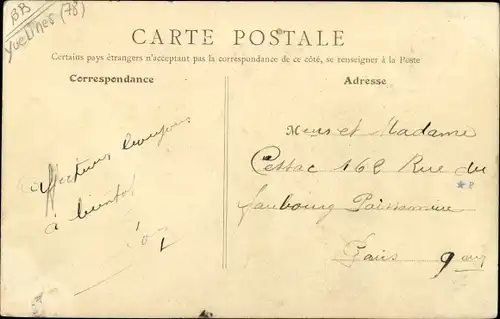 BB
Yvelines (78)
CARTE POSTALE
Certains pays étrangers n'acceptant pas la correspondance de ce côté, se renseigner à la Poste
Correspondance
Adresse
affectueux baisers
à bientot
Monsr et Madame
Cessac 162 Rue du
faubourg Poissonnière
Paris 9